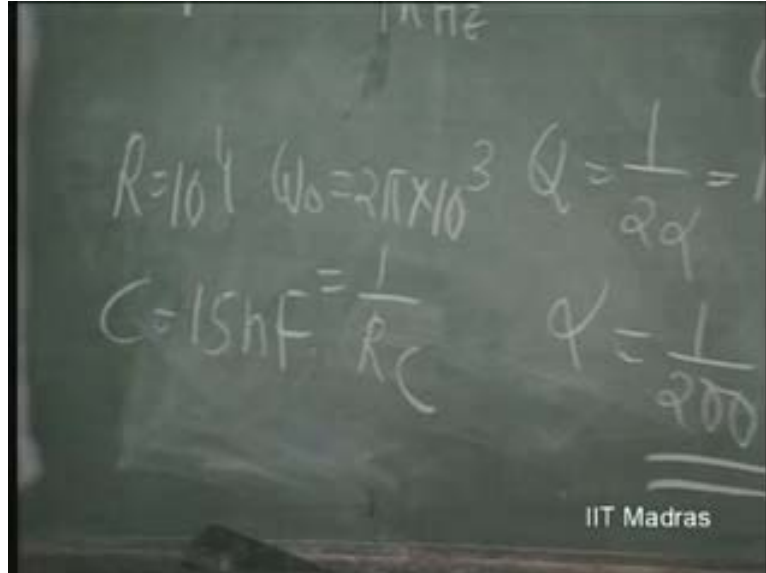 1KHz
R=10^4 ω₀=2π×10^3 Q=1/2α=1
C=15nF =1/RC α=1/200
IIT Madras